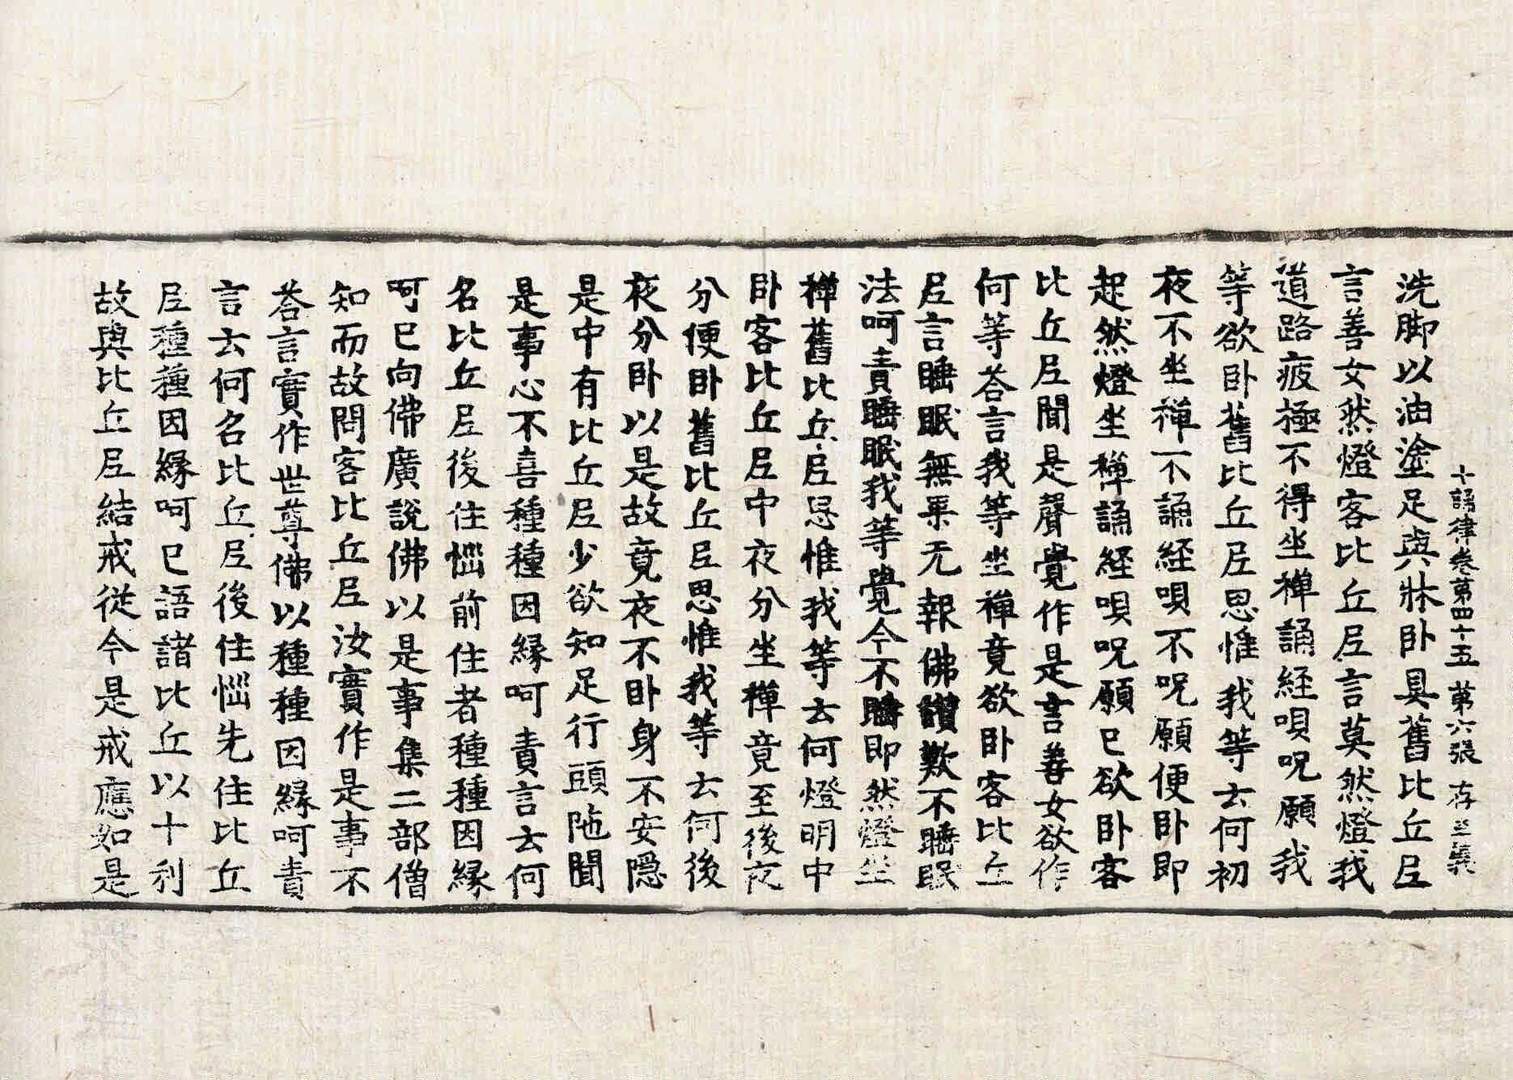 十誦律卷第四十五 第六張 存
洗脚以油塗足與牀卧具舊比丘𡰱
言善女然燈客比丘𡰱言莫然燈我
道路疲極不得坐禪誦經唄呪願我
等欲卧舊比丘𡰱思惟我等云何初
夜不坐禪不誦経唄不呪願便卧即
起然燈坐禪誦経唄呪願已欲卧客
比丘𡰱聞是聲覺作是言善女欲作
何等荅言我等坐禪竟欲卧客比丘
𡰱言睡眠無果无報佛讃歎不睡眠
法呵責睡眠我等覺今不睡即然燈坐
禪舊比丘𡰱思惟我等云何燈明中
卧客比丘𡰱中夜分坐禪竟至後夜
分便卧舊比丘𡰱思惟我等云何後
夜分卧以是故竟夜不卧身不安隱
是中有比丘𡰱少欲知足行頭陁聞
是事心不喜種種因縁呵責言云何
名比丘𡰱後住惱前住者種種因縁
呵已向佛廣說佛以是事集二部僧
知而故問客比丘𡰱汝實作是事不
荅言實作世尊佛以種種因縁呵責
言云何名比丘𡰱後住惱先住比丘
𡰱種種因縁呵已語諸比丘以十利
故與比丘𡰱結戒從今是戒應如是